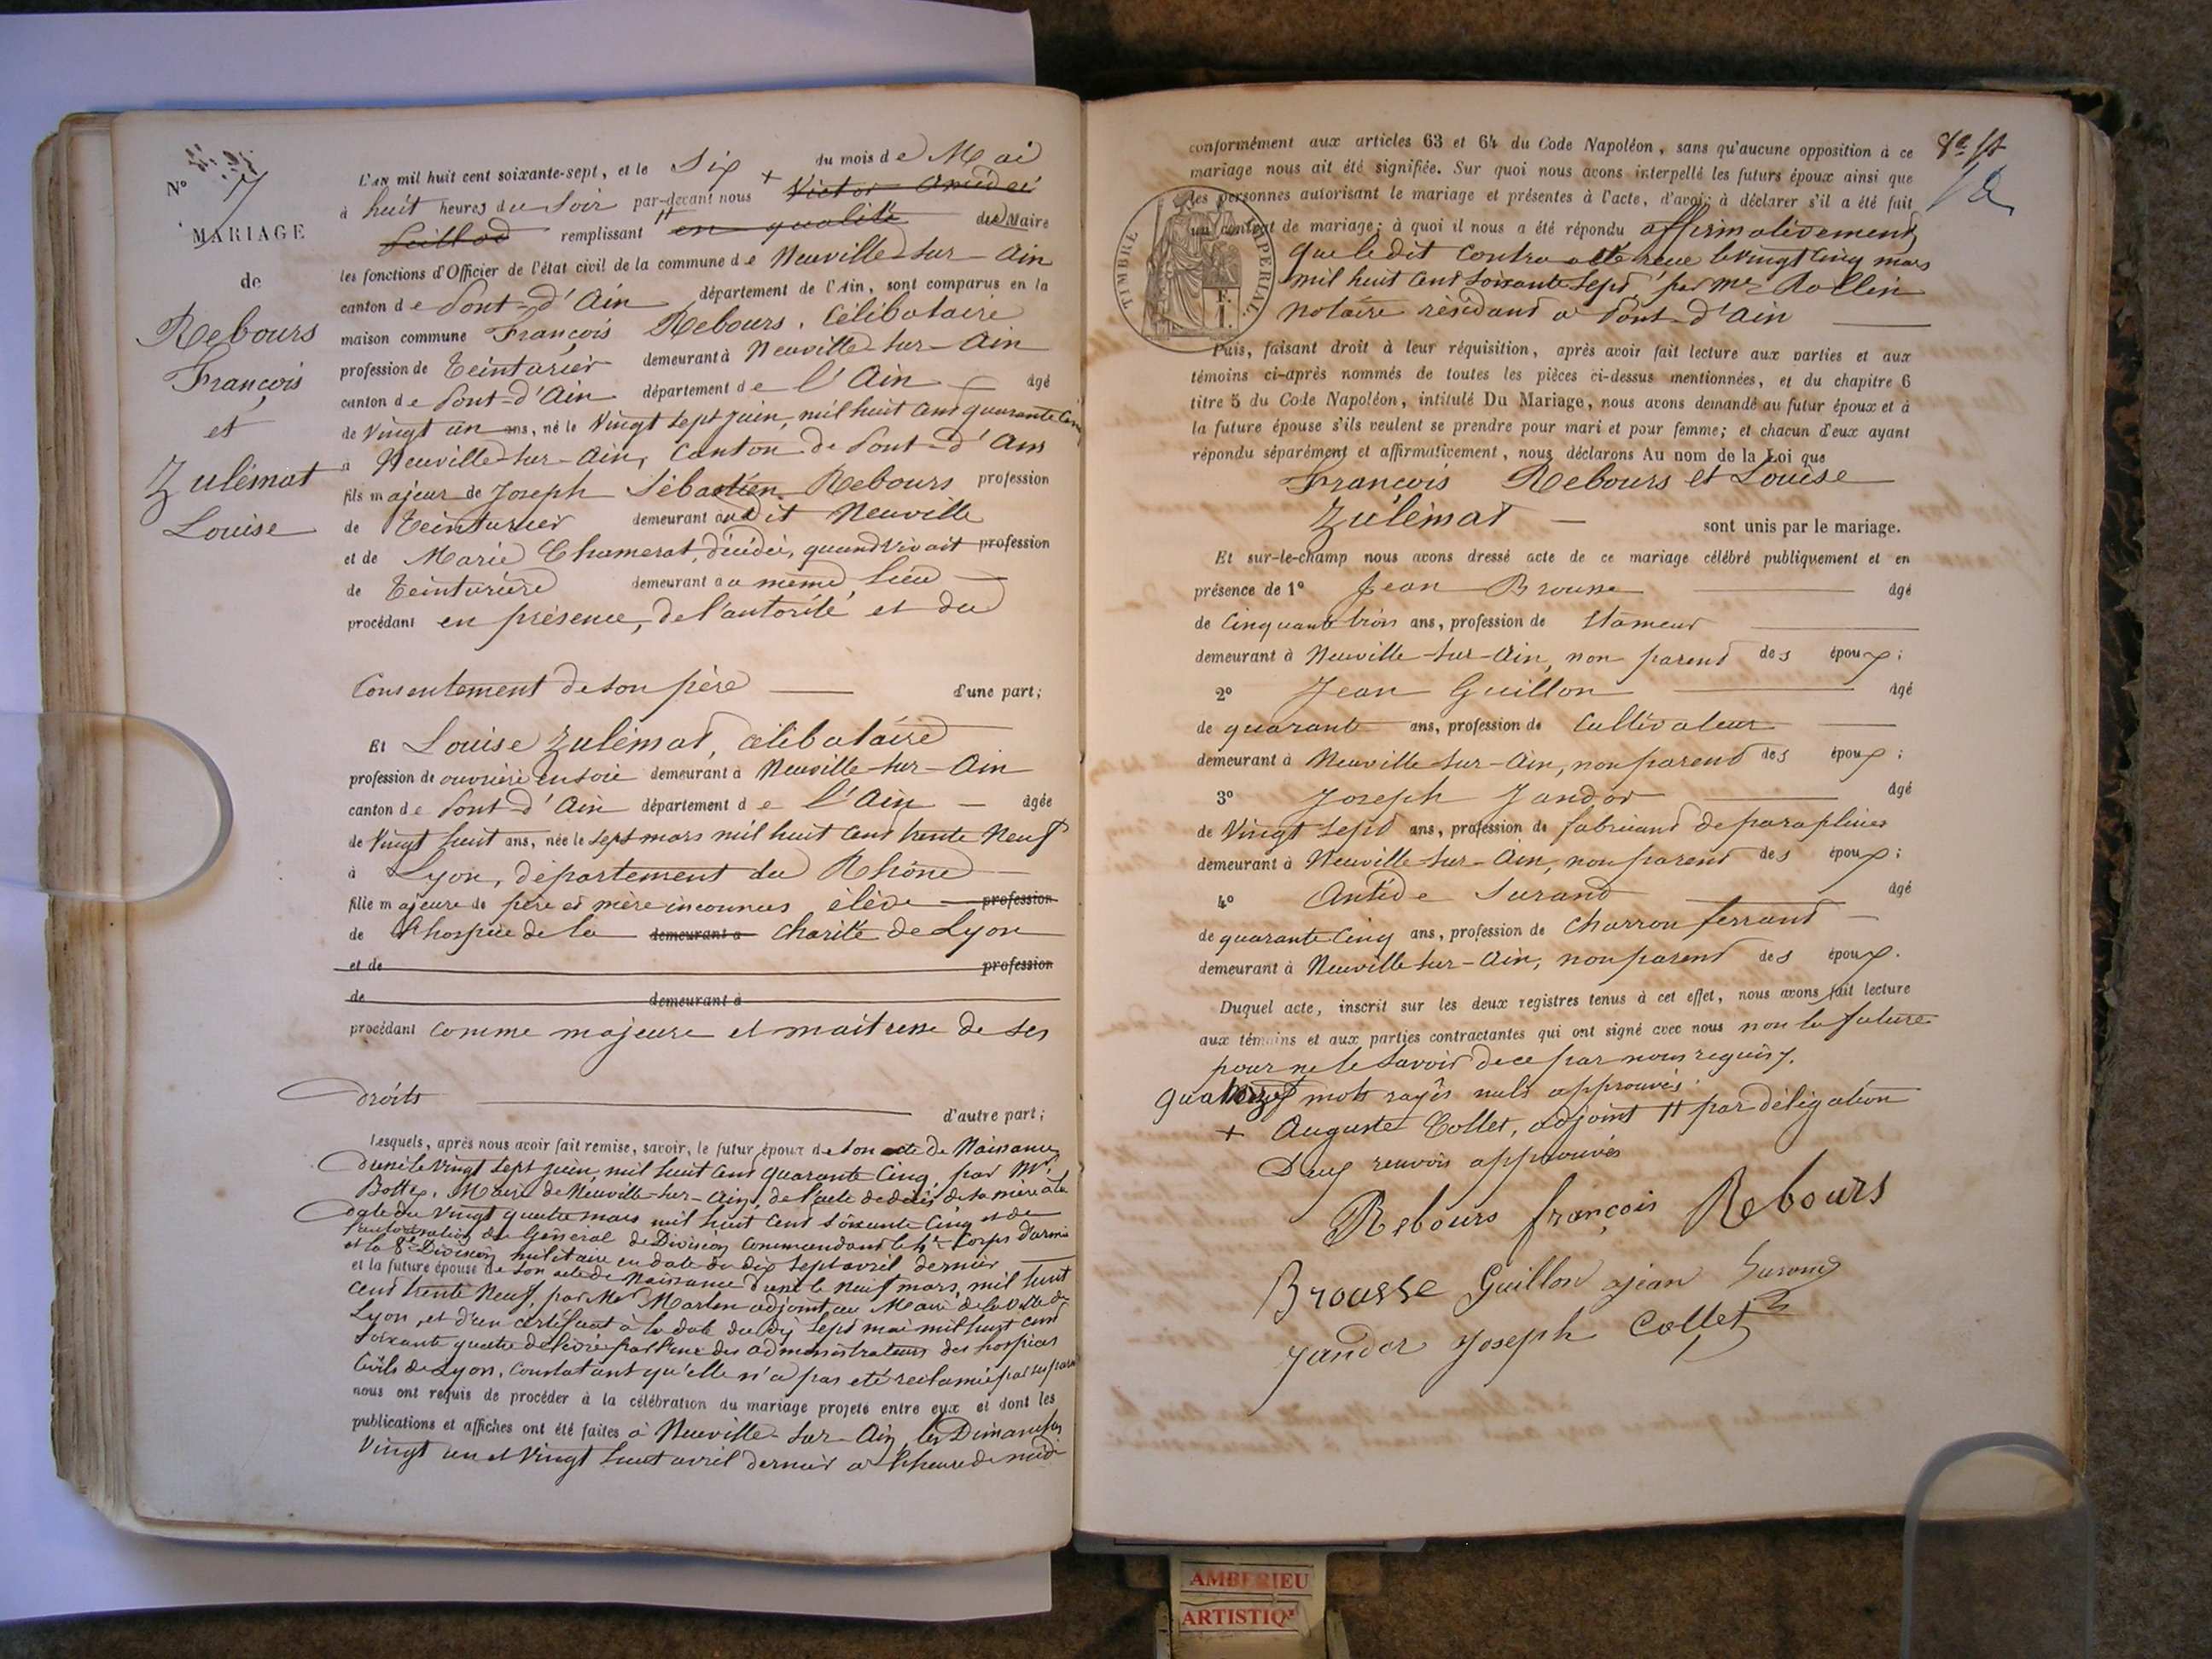 N° 7
MARIAGE
de
Rebours
François
et
Zulémat
Louise
L'AN mil huit cent soixante-sept, et le Six du mois de Mai
à huit heures du Soir par-devant nous + Victor Amédée
remplissant # en qualité de Maire
les fonctions d'Officier de l'état civil de la commune de Neuville-sur-Ain
canton de Pont-d'Ain département de l'Ain, sont comparus en la
maison commune François Rebours, Célibataire
profession de Teinturier demeurant à Neuville-sur-Ain
canton de Pont-d'Ain département de l'Ain âgé
de Vingt un ans, né le Vingt sept juin, mil huit cent quarante Cinq
à Neuville-sur-Ain, Canton de Pont-d'Ain
fils majeur de Joseph Sébastien Rebours profession
de Teinturier demeurant audit Neuville
et de Marie Chamerat, décédée, quand vivait profession
de Teinturière demeurant au même lieu
procédant en présence, de l'autorité et du
Consentement de son père d'une part;
Et Louise Zulémat, célibataire
profession de ouvrière en soie demeurant à Neuville-sur-Ain
canton de Pont-d'Ain département de l'Ain âgée
de Vingt huit ans, née le sept mars mil huit cent trente Neuf
à Lyon, département du Rhône
fille majeure de père et mère inconnus élève profession
de l'hospice de la demeurant à Charité de Lyon
et de profession
de demeurant à
procédant comme majeure et maitresse de ses
droits d'autre part;
Lesquels, après nous avoir fait remise, savoir, le futur époux de son acte de Naissance
dressé le Vingt sept juin, mil huit cent quarante Cinq, par Mr
Maire de Neuville-sur-Ain, de l'acte de décès de sa mère à la
date du Vingt quatre mars mil huit cent soixante Cinq et de
l'autorisation du Général de Division Commandant le 4e Corps d'armée
et la 8e Division militaire en date du dix sept avril dernier
et la future épouse de son acte de Naissance dressé le Neuf mars, mil huit
cent trente Neuf, par Mr adjoint au Maire de la Ville de
Lyon, et d'un certificat à la date du dix sept mai mil huit cent
soixante quatre délivré par l'un des administrateurs des hospices
Civils de Lyon, Constatant qu'elle n'a pas été réclamée par ses parents
nous ont requis de procéder à la célébration du mariage projeté entre eux et dont les
publications et affiches ont été faites à Neuville-sur-Ain, les Dimanches
Vingt un et Vingt huit avril dernier à l'heure de midi
conformément aux articles 63 et 64 du Code Napoléon, sans qu'aucune opposition à ce
mariage nous ait été signifiée. Sur quoi nous avons interpellé les futurs époux ainsi que
les personnes autorisant le mariage et présentes à l'acte, d'avoir à déclarer s'il a été fait
un contrat de mariage; à quoi il nous a été répondu affirmativement,
que le dit contra a été reçu le vingt Cinq mars
mil huit cent soixante sept par Me Rollin
notaire résidant à Pont-d'Ain
TIMBRE IMPÉRIAL
Puis, faisant droit à leur réquisition, après avoir fait lecture aux parties et aux
témoins ci-après nommés de toutes les pièces ci-dessus mentionnées, et du chapitre 6
titre 5 du Code Napoléon, intitulé Du Mariage, nous avons demandé au futur époux et à
la future épouse s'ils veulent se prendre pour mari et pour femme; et chacun d'eux ayant
répondu séparément et affirmativement, nous déclarons Au nom de la Loi que
François Rebours et Louise
Zulémat sont unis par le mariage.
Et sur-le-champ nous avons dressé acte de ce mariage célébré publiquement et en
présence de 1° Jean Brousse âgé
de Cinquante trois ans, profession de Etameur
demeurant à Neuville-sur-Ain, non parent des époux;
2° Jean Guillon âgé
de quarante ans, profession de Cultivateur
demeurant à Neuville-sur-Ain, non parent des époux;
3° Joseph Jandor âgé
de Vingt sept ans, profession de fabricant de parapluies
demeurant à Neuville-sur-Ain, non parent des époux;
4° Antide Surand âgé
de quarante Cinq ans, profession de Charron ferrant
demeurant à Neuville-sur-Ain, non parent des époux.
Duquel acte, inscrit sur les deux registres tenus à cet effet, nous avons fait lecture
aux témoins et aux parties contractantes qui ont signé avec nous non la future
pour ne le savoir de ce par nous requis.
quatorze mots rayés nuls approuvés.
+ Auguste Collet, adjoint # par délégation
Deux renvois approuvés
Rebours françois Rebours
Brousse Guillon jean Surand
Jandor Joseph Collet
AMBERIEU
ARTISTIQ